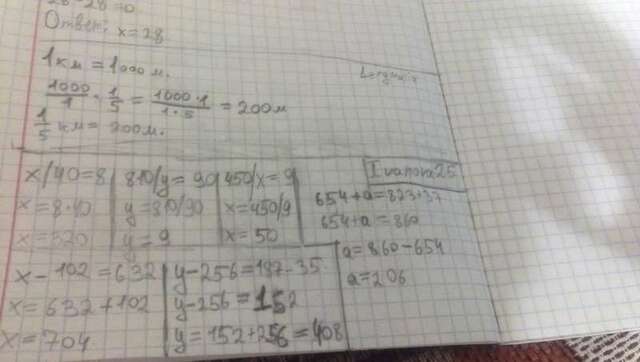 28-28=0
Ответ: x=28
1 км = 1000 м.
1000/1 · 1/5 = 1000·1/1·5 = 200м
1/5 км = 200м.
Ivanova25
x/40=8
x=8·40
x=320
810/y=90
y=810/90
y=9
450/x=9
x=450/9
x=50
654+a=823+37
654+a=860
a=860-654
a=206
x-102=632
x=632+102
x=704
y-256=187-35
y-256=152
y=152+256=408